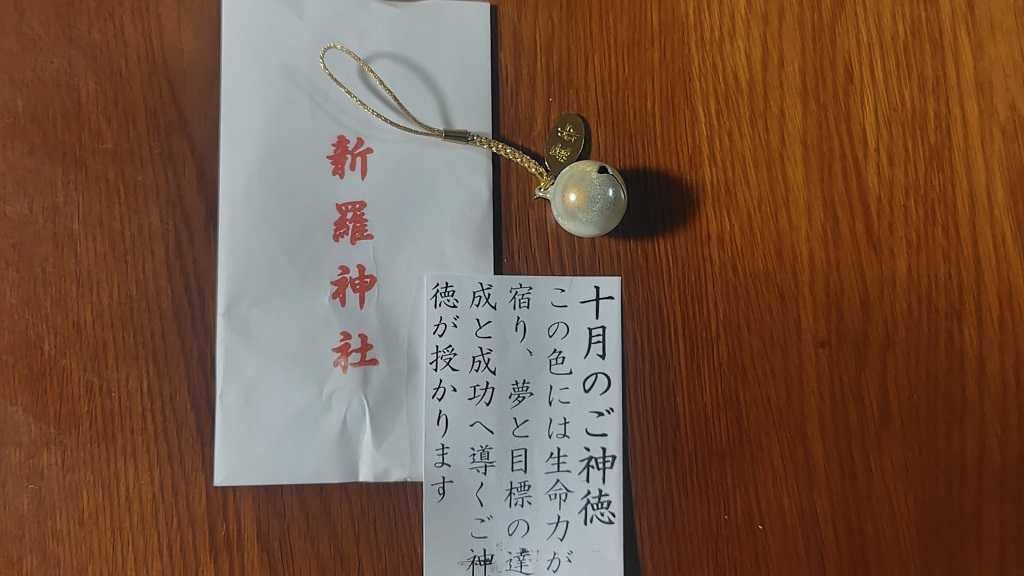 新羅神社
十月のご神徳
この色には生命力が
宿り、夢と目標の達
成と成功へ導くご神
徳が授かります